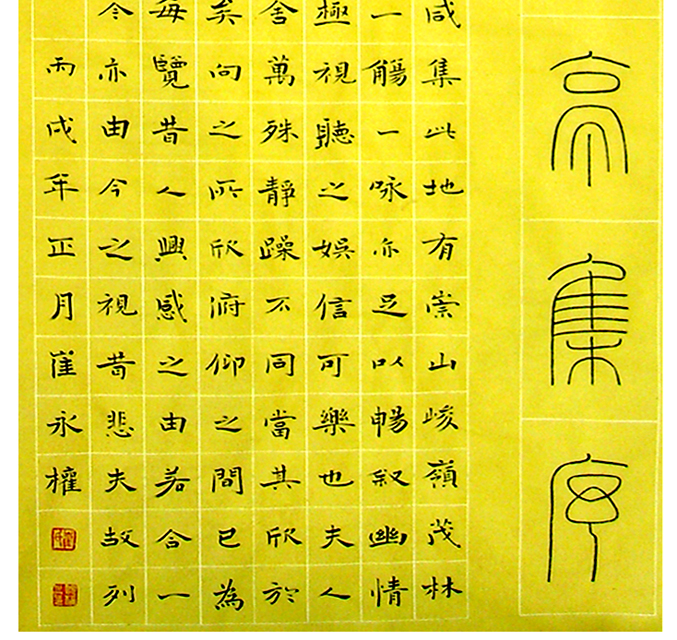 亭集序
咸集此地有崇山峻嶺茂林
一觴一咏亦足以暢叙幽情
極視聽之娛信可樂也夫人
舍萬殊靜躁不同當其欣於
矣向之所欣俯仰之間已為
每覽昔人興感之由若合一
今亦由今之視昔悲夫故列
丙戌年正月崔永權